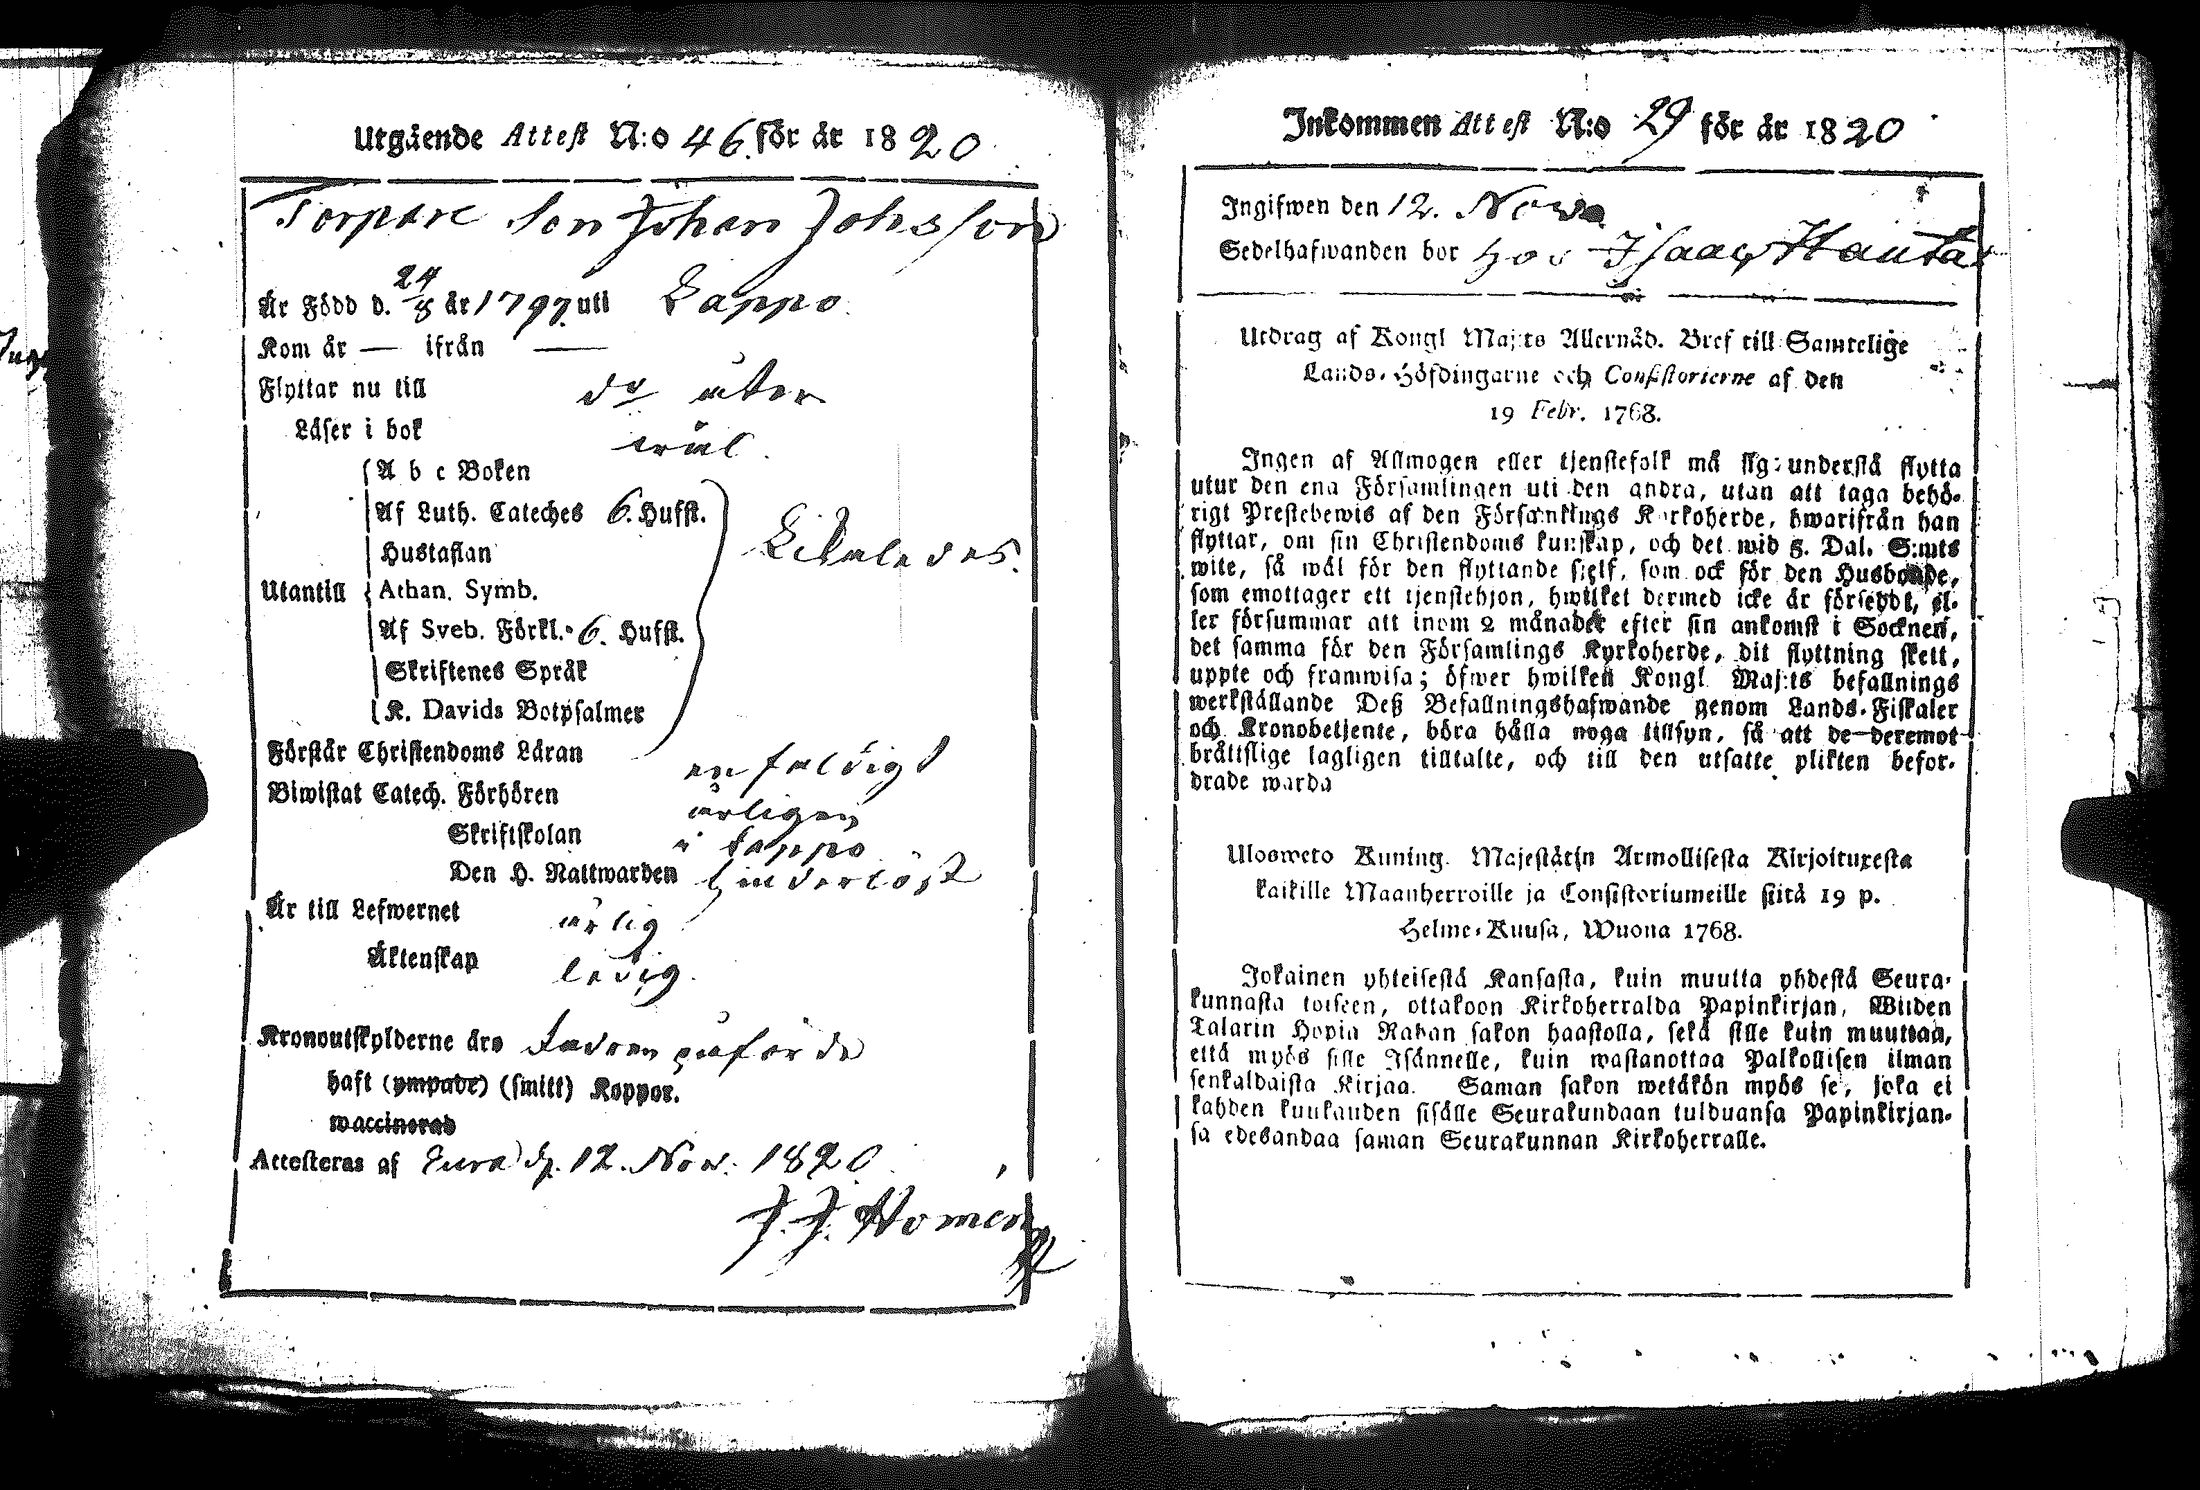 Utgående Attest N:o 46. för år 1820
Torpare Son Johan Johansson
Är Född d. 24/8 år 1797. uti Lappo.
Kom år — ifrån —
Flyttar nu till do åter
Läser i bok wäl.
A b c Boken
Af Luth. Cateches 6. Hufst.
Hustaflan
Likaledes.
Utantill Athan. Symb.
Af Sveb. Förkl. 6. Hufst.
Skriftenes Språk
K. Davids Botpsalmer
Förstår Christendoms Läran enfaldigt
Biwistat Catech. Förhören årligen
Skriftskolan i Lappo
Den H. Nattwarden hinderlöst
Är till Lefwernet ärlig
Äktenskap ledig.
Kronoutskylderne äro Fadren påförde
haft (ympade) (smitt) Koppor.
waccinerad
Attesteras af Eura d. 12. Nov. 1820
J. J. Nomén
Inkommen Attest N:o 29 för år 1820
Ingifwen den 12. Nov.
Sedelhafwanden bor hos Isaac
Utdrag af Kongl Maj:ts Allernåd. Bref till Samtelige
Lands-Höfdingarne och Consistorierne af den
19 Febr. 1768.
Ingen af Allmogen eller tjenstefolk må sig understå flytta
utur den ena Församlingen uti den andra, utan att taga behö-
rigt Prestebewis af den Församlings Kyrkoherde, hwarifrån han
flyttar, om sin Christendoms kunskap, och det wid 5. Dal. S:mts
wite, så wäl för den flyttande sjelf, som ock för den Husbonde,
som emottager ett tjenstehjon, hwilket dermed icke är försedt, el-
ler försummar att inom 2 månader efter sin ankomst i Socknen,
det samma för den Församlings Kyrkoherde, dit flyttning skett,
uppte och framwisa; öfwer hwilken Kongl Maj:ts befallnings
werkställande Deß Befallningshafwande genom Lands-Fiskaler
och Kronobetjente, böra hålla noga tillsyn, så att de deremot
bråttslige lagligen tilltalte, och till den utsatte plikten befor-
drade warda
Ulosweto Kuning. Majestätin Armollisesta Kirjoituxesta
kaikille Maanherroille ja Consistoriumeille siitä 19 p.
Helme-Kuusa, Wuona 1768.
Jokainen yhteisestä Kansasta, kuin muutta yhdestä Seura-
kunnasta toiseen, ottakoon Kirkoherralda Papinkirjan, Wiiden
Talarin Hopia Rahan sakon haastolla, sekä sille kuin muuttaa,
että myös sille Isännelle, kuin wastanottaa Palkollisen ilman
senkaldaista Kirjaa. Saman sakon wetäkön myös se, joka ei
kahden kuukauden sisälle Seurakundaan tulduansa Papinkirjan-
sa edesandaa saman Seurakunnan Kirkoherralle.